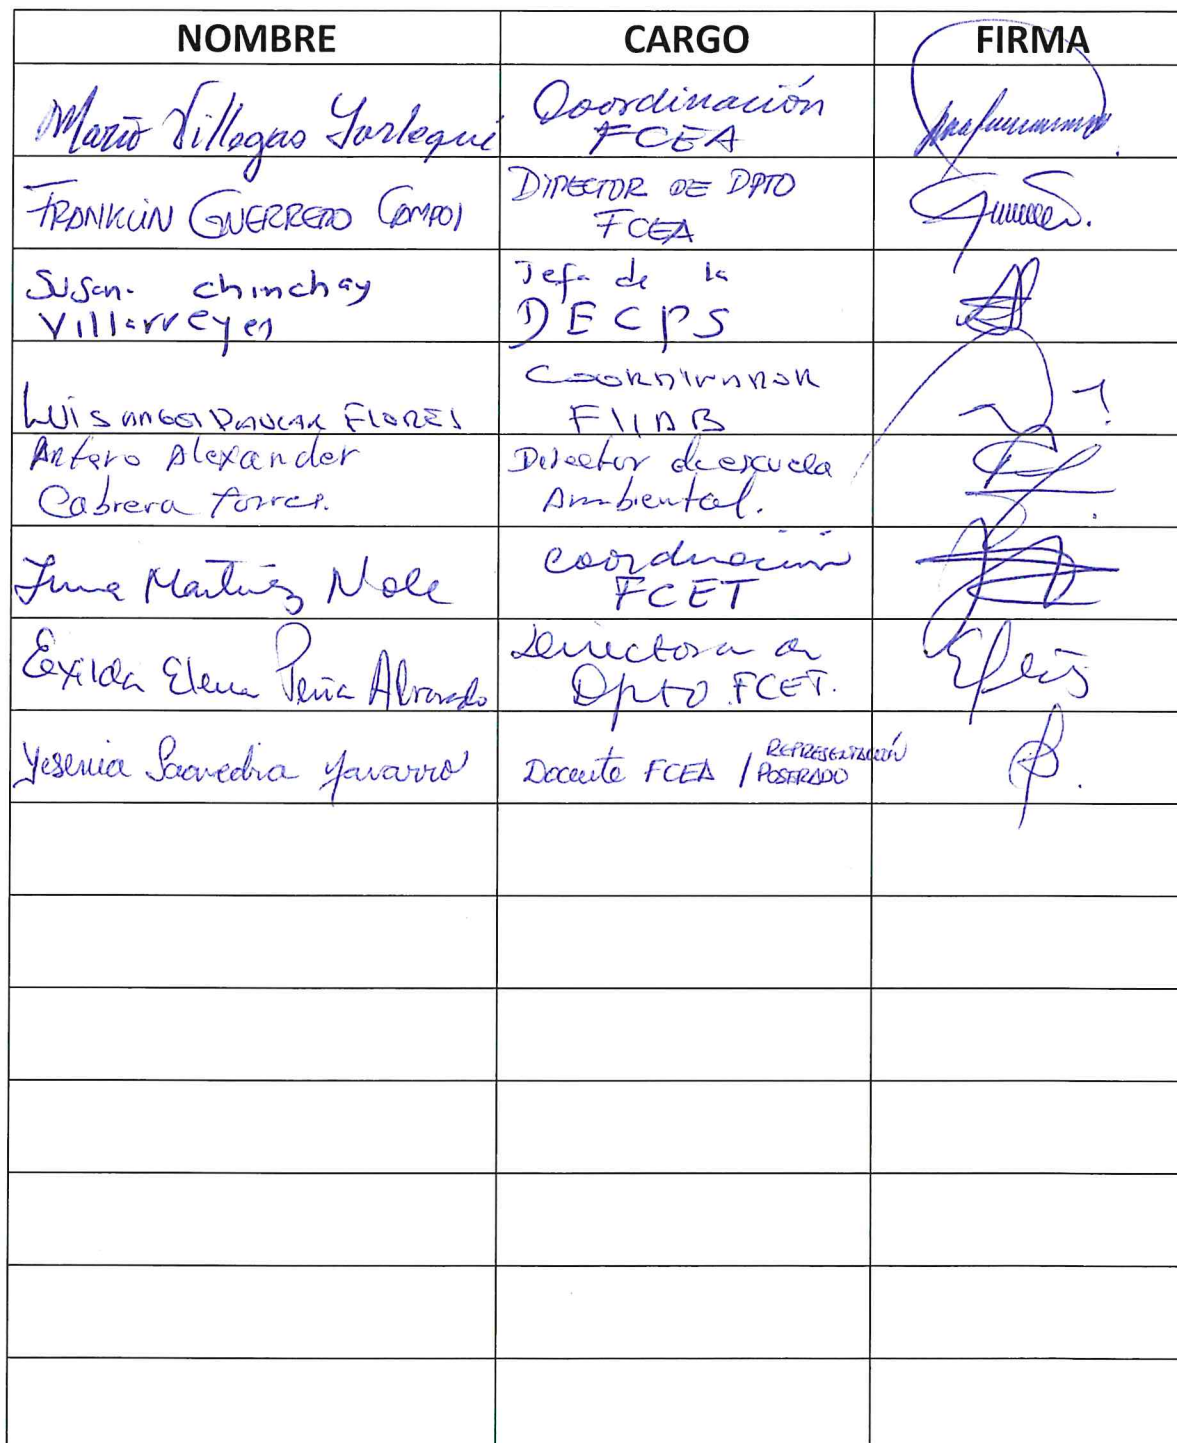 NOMBRE CARGO FIRMA
Mario Villegas Yarlequé Coordinación
FCEA
FRANKLIN GUERRERO CAMPOS DIRECTOR DE DPTO
FCEA
Susana chinchay Jefa de la
Villarreyes DECPS
COORDINADOR
LUIS ANGEL PAUCAR FLORES FIIAB
Antero Alexander Director de escuela
Cabrera Torres. Ambiental.
Martínez Nole Coordinación
FCET
Elena Peña Alvarado Directora de
Dpto FCET.
Yesenia Saavedra Navarro Docente FCEA / REPRESENTACIÓN
POSGRADO